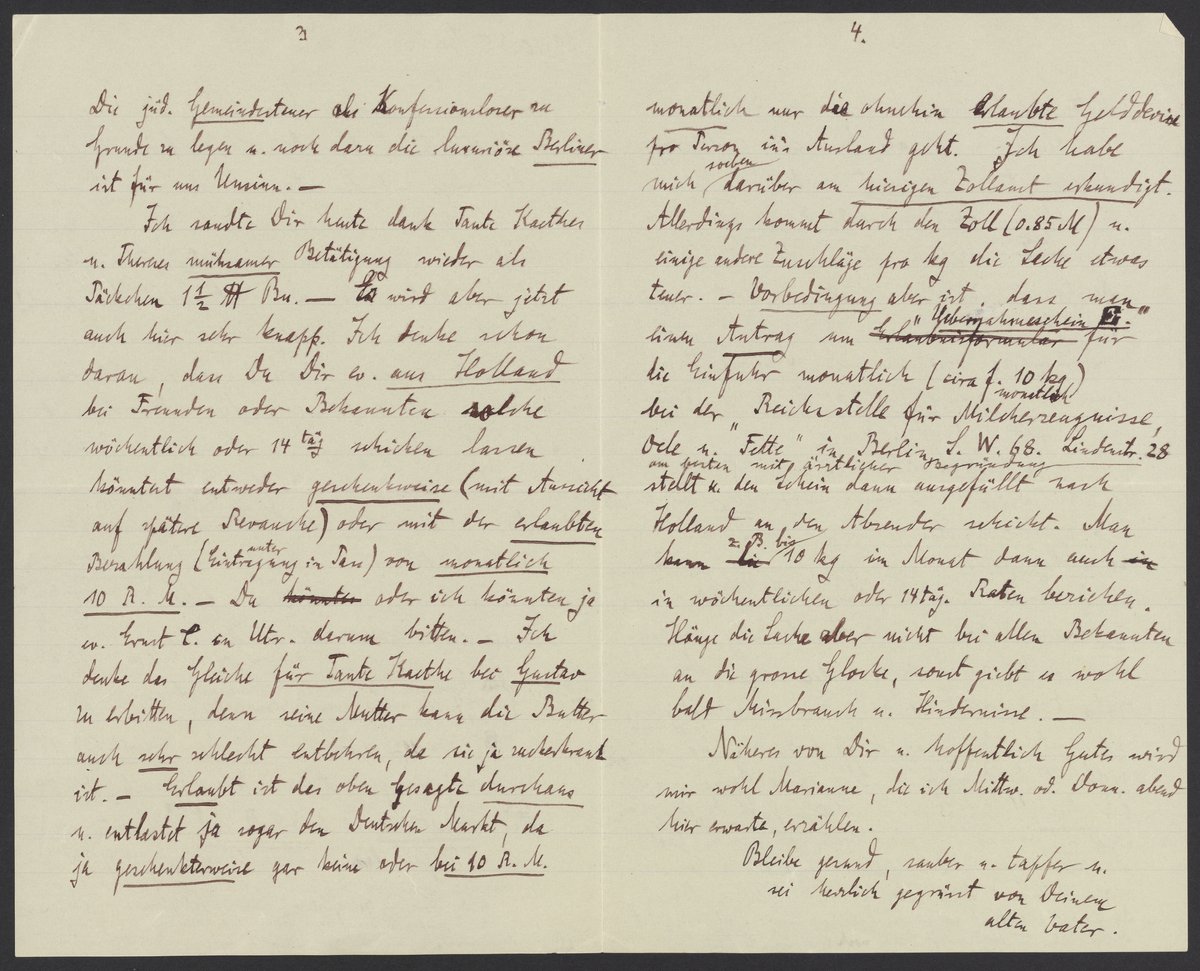 3
Die jüd. Gemeindesteuer als Konfessionsloser zu
Grunde zu legen u. noch dazu die luxuriöse Berliner
ist für uns Unsinn. —
Ich sandte Dir heute dank Tante Kaethes
u. Thereses mühsamer Betätigung wieder als
Päckchen 1 1/2 ℔ Bu. — Es wird aber jetzt
auch hier sehr knapp. Ich denke schon
daran, dass Du Dir ev. aus Holland
bei Freunden oder Bekannten solche
wöchentlich oder 14 täg schicken lassen
könntest entweder geschenkweise (mit Aussicht
auf spätere Revanche) oder mit der erlaubten
Bezahlung (unter Eintragung in Pass) von monatlich
10 R. M. — Du könntest oder ich könnten ja
ev. Ernst L. in Utr. darum bitten. — Ich
denke das Gleiche für Tante Kaethe bei Gustav
zu erbitten, denn seine Mutter kann die Butter
auch sehr schlecht entbehren, da sie ja zuckerkrank
ist. — Erlaubt ist das oben Gesagte durchaus
u. entlastet ja sogar den Deutschen Markt, da
ja geschenkterweise gar keine oder bei 10 R. M.
4.
monatlich nur die ohnehin erlaubte Gelddevise
pro Person ins Ausland geht. Ich habe
mich soeben darüber am hiesigen Zollamt erkundigt.
Allerdings kommt durch den Zoll (0.85 M) u.
einige andere Zuschläge pro kg die Sache etwas
teuer. — Vorbedingung aber ist, dass man
einen Antrag um Erlaubnisformular "Uebernahmeschein Ei." für
die Einfuhr monatlich (circa f. 10 kg)
bei der "Reichsstelle für Milcherzeugnisse, monatlich
Oele u. Fette" in Berlin S. W. 68. Lindenstr. 28
am besten mit ärztlicher Begründung
stellt u. den Schein dann ausgefüllt nach
Holland an den Absender schickt. Man
kann z. B. bis 10 kg im Monat dann auch in
in wöchentlichen oder 14täg. Raten beziehen.
Hänge die Sache aber nicht bei allen Bekannten
an die grosse Glocke, sonst giebt es wohl
bald Missbrauch u. Hindernisse. —
Näheres von Dir u. hoffentlich Gutes wird
mir wohl Marianne, die ich Mittw. od. Donn. abend
hier erwarte, erzählen.
Bleibe gesund, sauber u. tapfer u.
sei herzlich gegrüsst von Deinem
alten Vater.